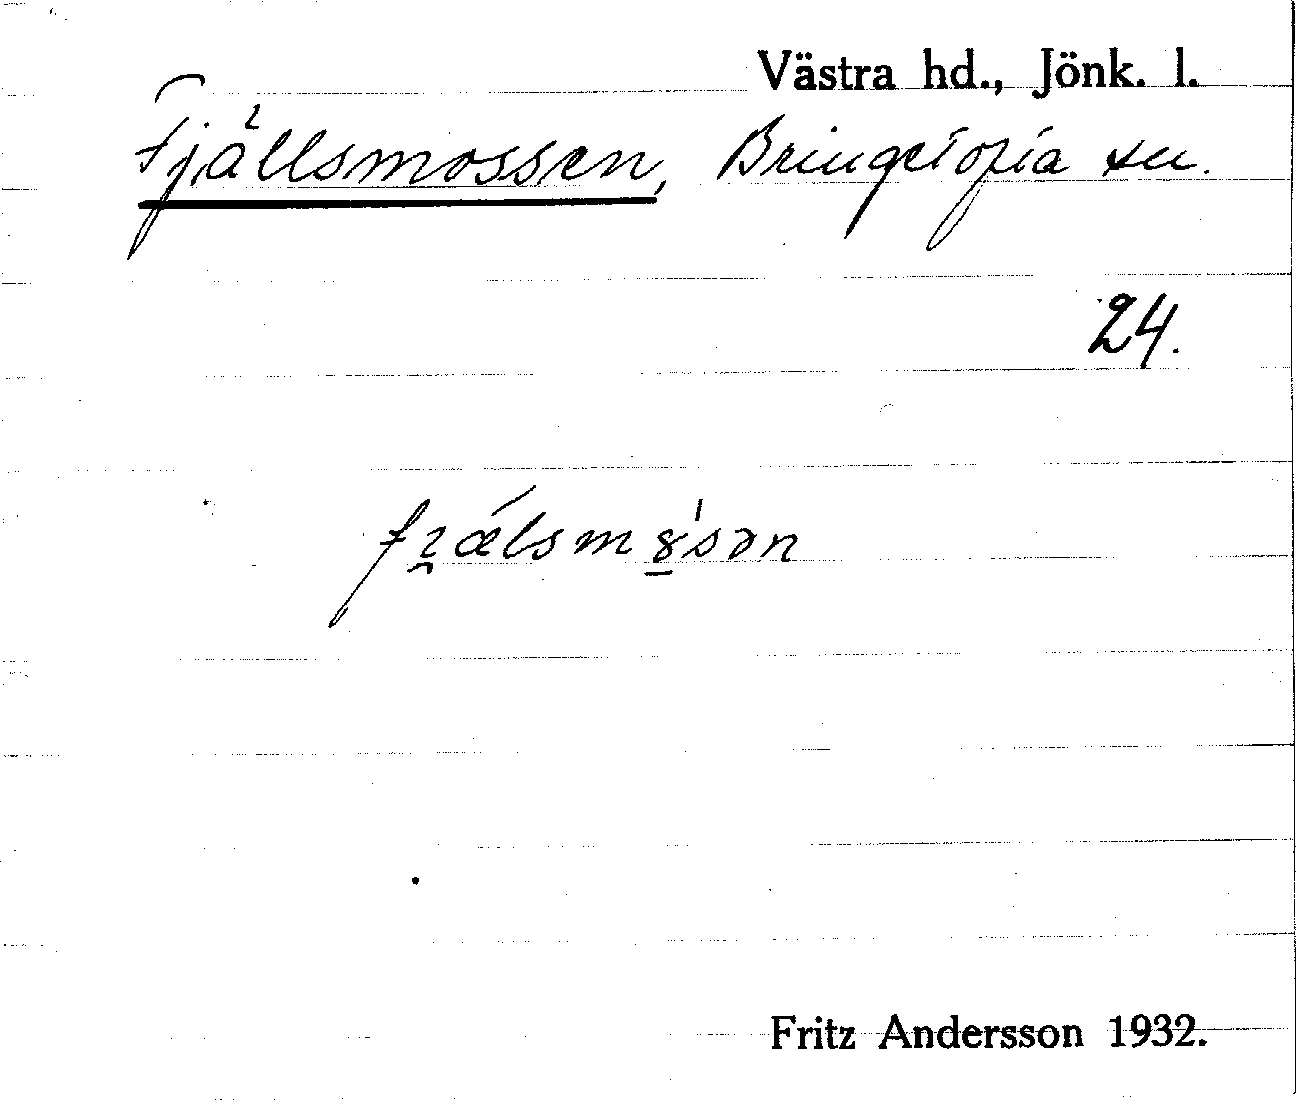 Västra hd., Jönk. l.
Fjällsmossen, Bringetofta sn.
24.
fɿǽlsmɤ̠'sən
Fritz Andersson 1932.